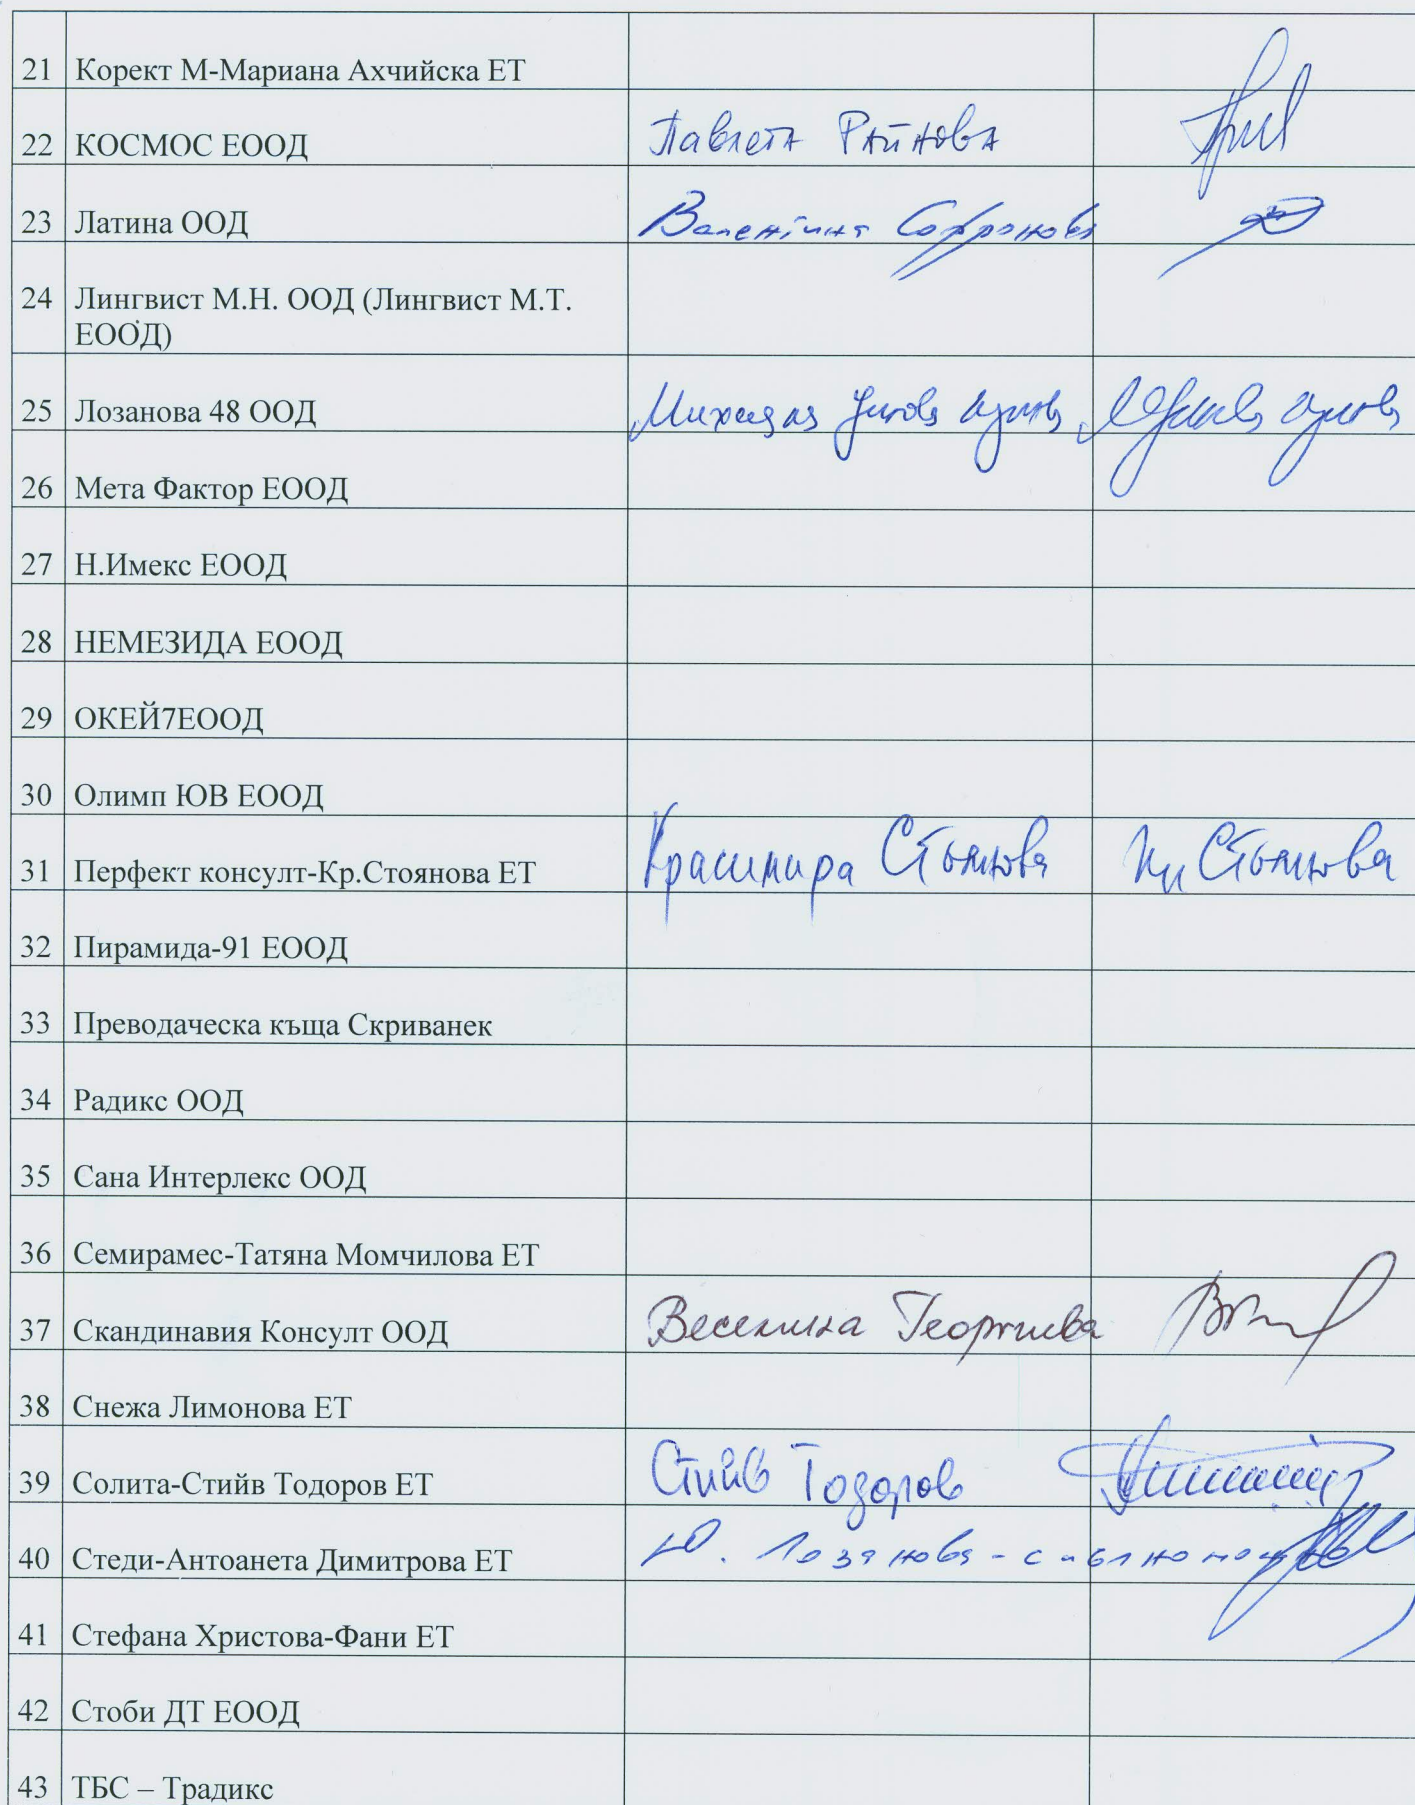 21 Корект М-Мариана Ахчийска ЕТ
22 КОСМОС ЕООД Павлета Райнова
23 Латина ООД Валентина Софронова
24 Лингвист М.Н. ООД (Лингвист М.Т.
ЕООД)
25 Лозанова 48 ООД
26 Мета Фактор ЕООД
27 Н.Имекс ЕООД
28 НЕМЕЗИДА ЕООД
29 ОКЕЙ7ЕООД
30 Олимп ЮВ ЕООД
31 Перфект консулт-Кр.Стоянова ЕТ Красимира Стоянова Кр Стоянова
32 Пирамида-91 ЕООД
33 Преводаческа къща Скриванек
34 Радикс ООД
35 Сана Интерлекс ООД
36 Семирамес-Татяна Момчилова ЕТ
37 Скандинавия Консулт ООД Веселина Георгиева
38 Снежа Лимонова ЕТ
39 Солита-Стийв Тодоров ЕТ Стийв Тодоров
40 Стеди-Антоанета Димитрова ЕТ Ю. Лозанова - с
41 Стефана Христова-Фани ЕТ
42 Стоби ДТ ЕООД
43 ТБС – Традикс